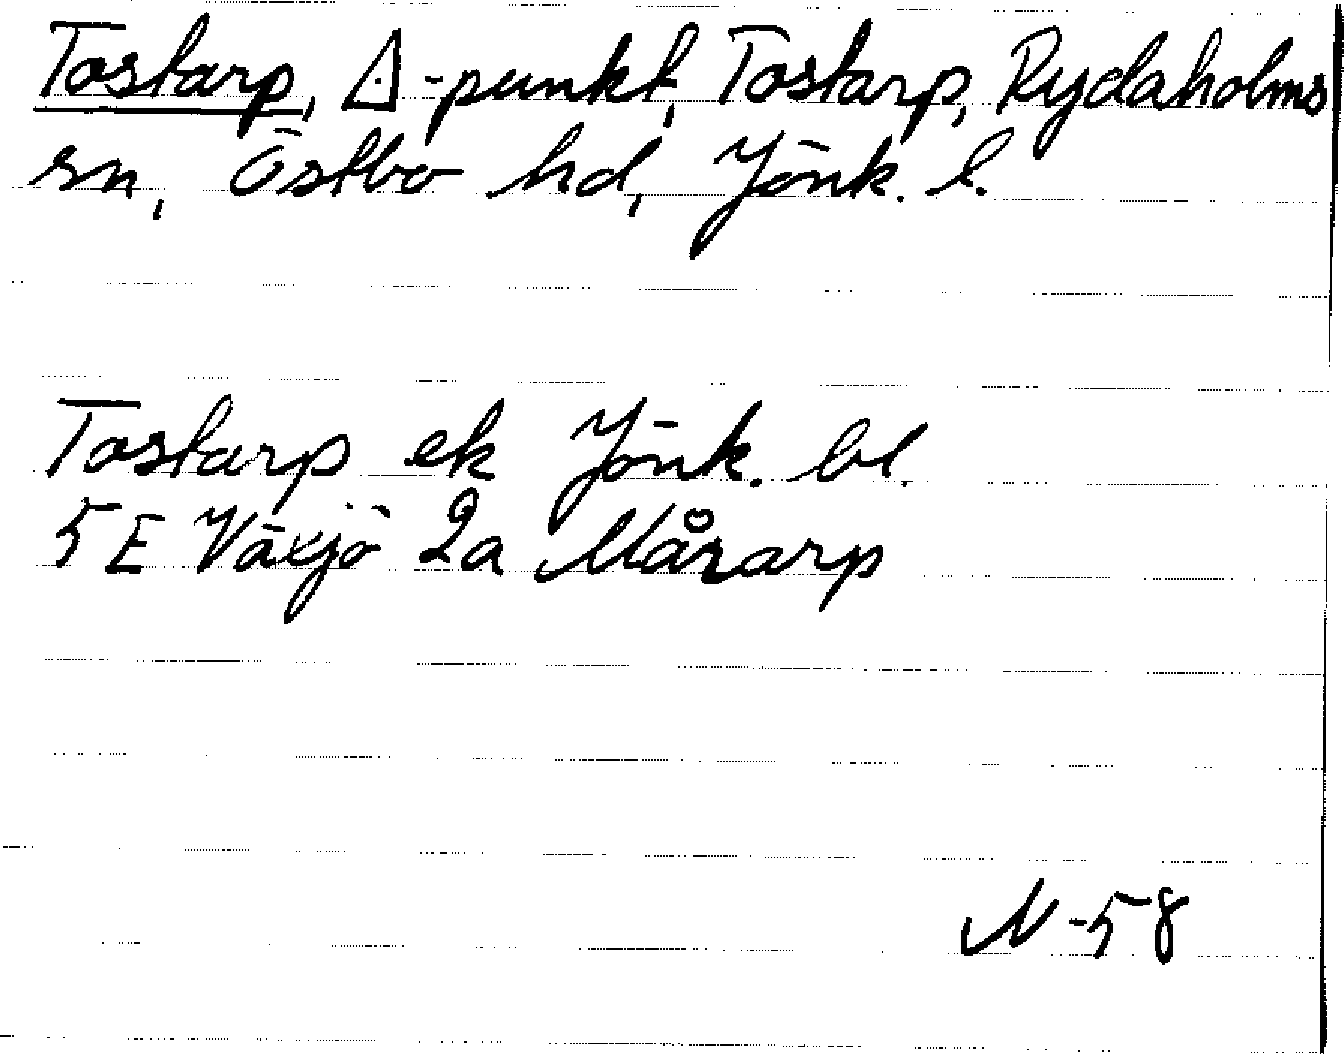 Tostarp, ⊿-punkt, Tostarp, Rydaholms
sn, Östbo hd, Jönk. l.
Tostarp ek Jönk. bl.
5E Växjö 2a Målarp
N-58